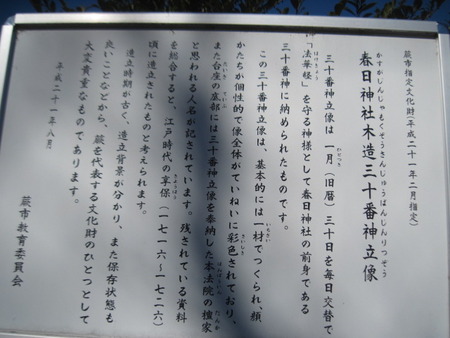 蕨市指定文化財(平成二十一年二月指定)
かすがじんじゃもくぞうさんじゅうばんじんりつぞう
春日神社木造三十番神立像
三十番神立像は一月(旧暦)三十日を毎日交替で
『法華経』を守る神様として春日神社の前身である
三十番神に納められたものです。
この三十番神立像は、基本的には一材でつくられ、顔
かたちが個性的で像全体がていねいに彩色されており、
また台座の底部には三十番神立像を奉納した本法院の檀家
と思われる人名が記されています。残されている資料
を総合すると、江戸時代の享保(一七一六〜一七二六)
頃に造立されたものと考えられます。
造立時期が古く、造立背景が分かり、また保存状態も
良いことなどから、蕨を代表する文化財のひとつとして
大変貴重なものであります。
平成二十一年八月
蕨市教育委員会